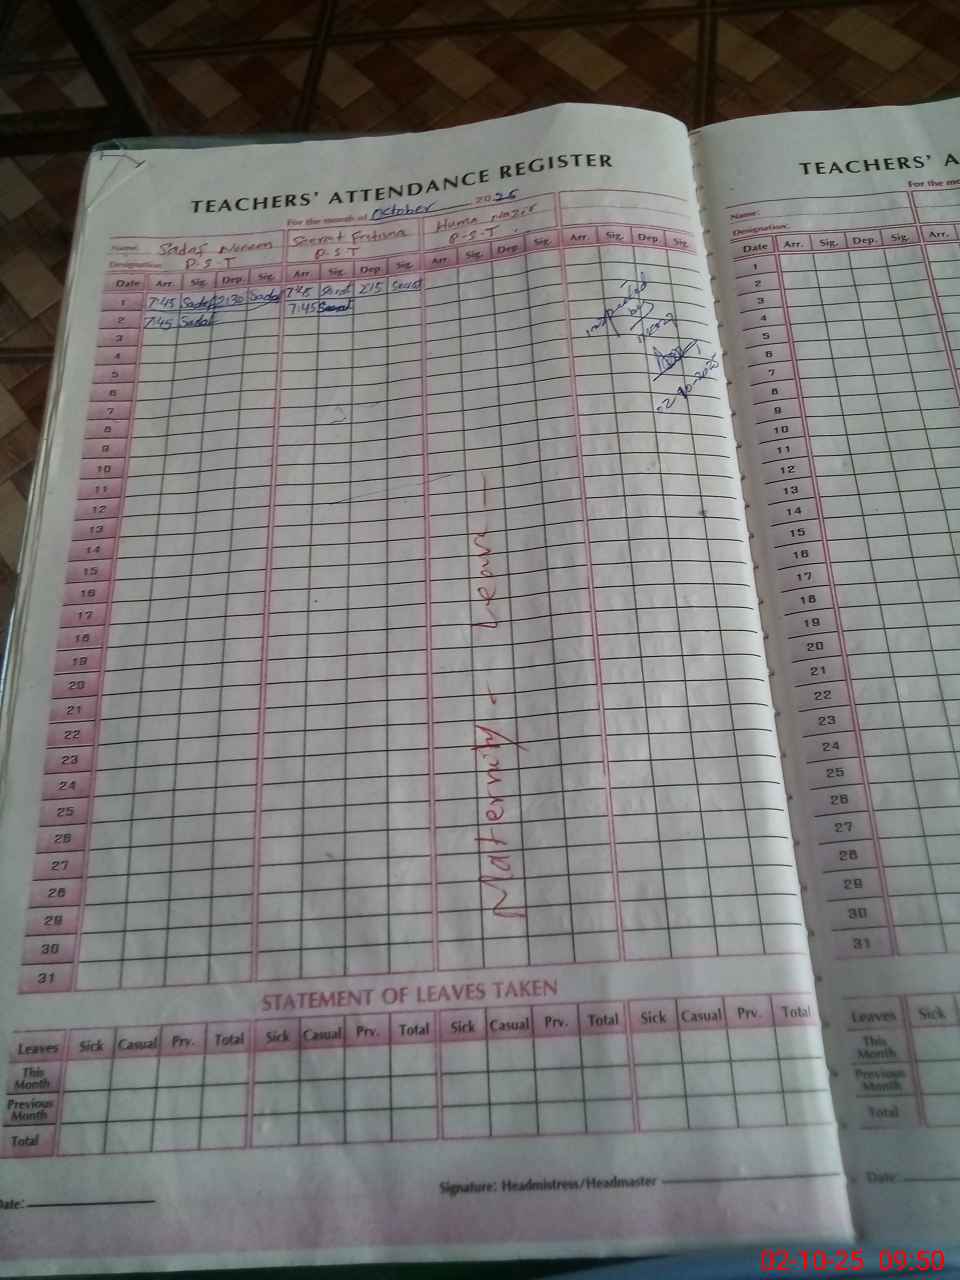 TEACHERS' ATTENDANCE REGISTER
For the month of October 2025
Name: Sadaf Noreen Huma Nazir
Designation: P.S.T P.S.T P.S.T
Date Arr. Sig. Dep. Sig. Arr. Sig. Dep. Sig. Arr. Sig. Dep. Sig. Arr. Sig. Dep. Sig.
1 7:45 Sadaf 2:30 Sadaf 7:45 2:15
2 7:45 Sadaf 7:45
3
4
5
6
7
8
9
10
11
12
13
14
15
16
17
18
19
20
21
22
23
24
25
26
27
28
29
30
31
Maternity - Leave
inspected
by
02-10-2025
STATEMENT OF LEAVES TAKEN
Leaves Sick Casual Prv. Total Sick Casual Prv. Total Sick Casual Prv. Total Sick Casual Prv. Total
This Month
Previous Month
Total
Date:
Signature: Headmistress/Headmaster
TEACHERS' A
For the mo
Name:
Designation:
Date Arr. Sig. Dep. Sig. Arr.
1
2
3
4
5
6
7
8
9
10
11
12
13
14
15
16
17
18
19
20
21
22
23
24
25
26
27
28
29
30
31
Leaves Sick
This Month
Previous Month
Total
Date:
02-10-25 09:50